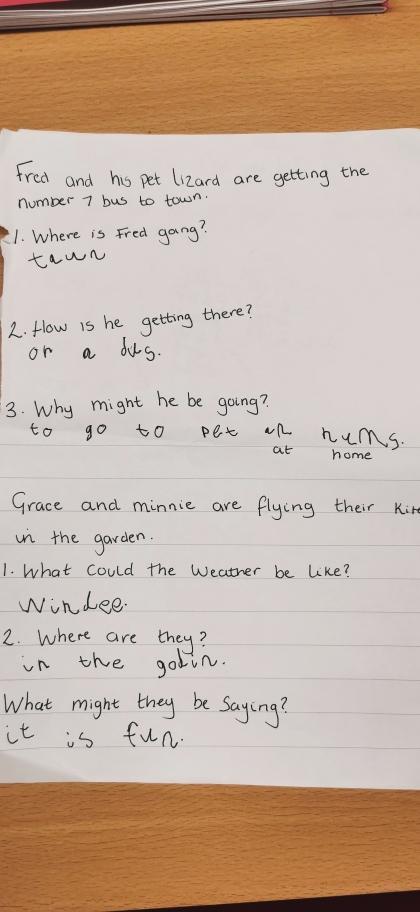 Fred and his pet lizard are getting the
number 7 bus to town.
1. Where is Fred going?
taun
2. How is he getting there?
on a dus.
3. Why might he be going?
to go to pet at hums.
at home
Grace and minnie are flying their Kite
in the garden.
1. What Could the Weather be like?
Windee.
2. Where are they?
in the godin.
What might they be Saying?
it is fun.